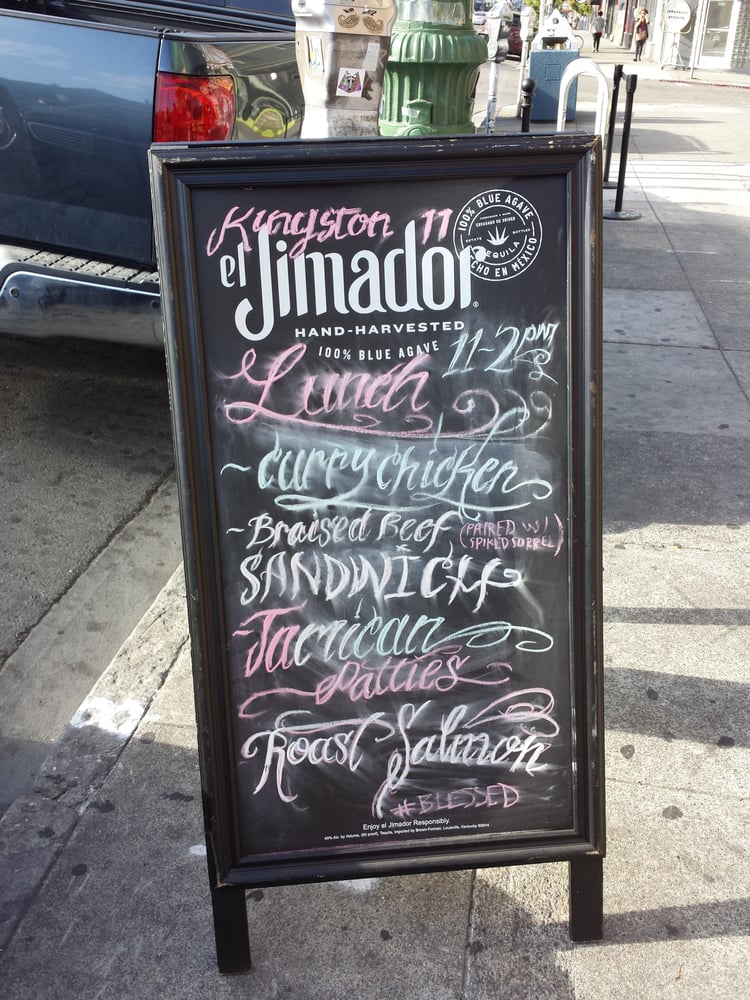 Kingston 11
el Jimador®
HAND-HARVESTED
100% BLUE AGAVE
100% BLUE AGAVE
TEQUILA
HECHO EN MÉXICO
11-2pm
Lunch
~ curry chicken
~ Braised Beef (PAIRED W/ SPIKED SORREL)
SANDWICH
~ Jamican
Patties
Roast Salmon
#BLESSED
Enjoy el Jimador Responsibly.
40% Alc. by Volume, (80 proof), Tequila, Imported by Brown-Forman, Louisville, Kentucky ©2014